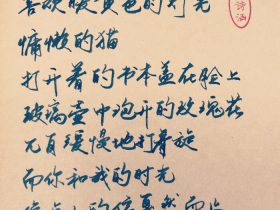 喜欢暖黄色的灯光
慵懒的猫
打开着的书本盖在脸上
玻璃壶中泡开的玫瑰花
兀自缓慢地打着旋
而你和我的时光
的 然而止
诗涵